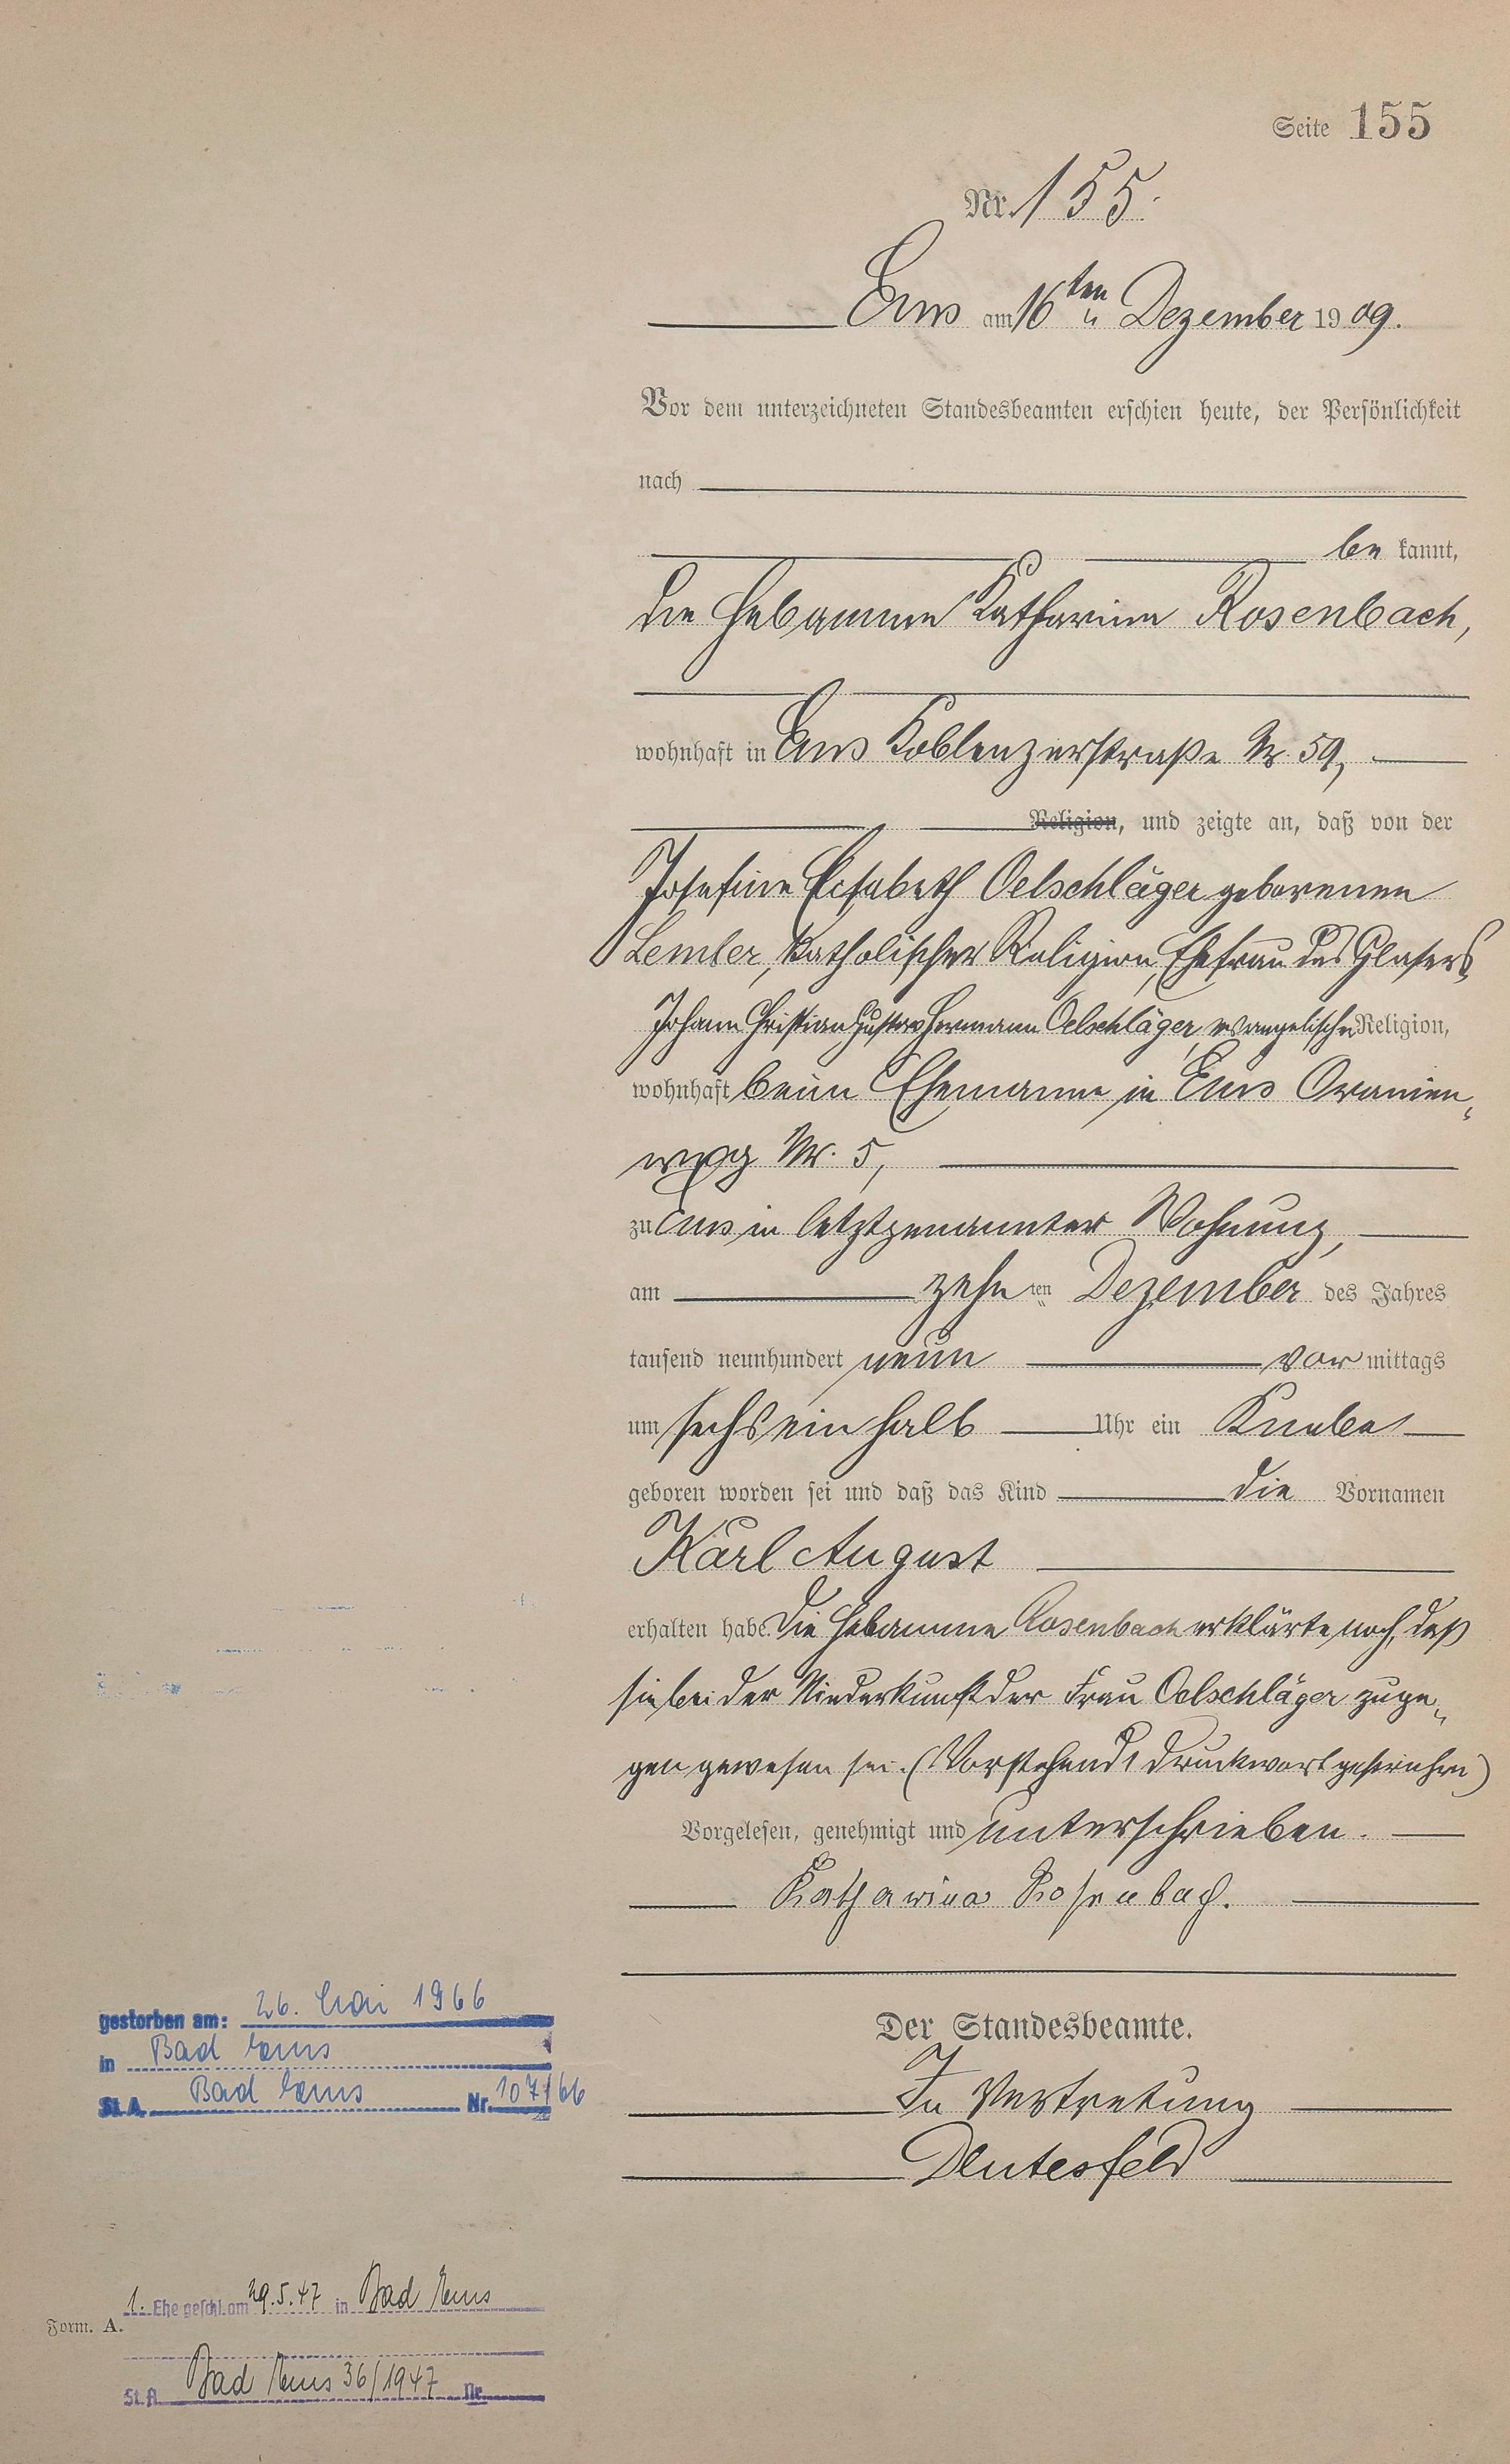 Seite 155
Nr. 155.
Ems am 16ten Dezember 1909.
Vor dem unterzeichneten Standesbeamten erschien heute, der Persönlichkeit
nach
be kannt,
die Hebamme Katharina Rosenbach,
wohnhaft in Ems Koblenzerstraße Nr. 59,
Religion, und zeigte an, daß von der
Josefine Elisabeth Oelschläger geborenen
Lemler, katholischer Religion, Ehefrau des Glasers
Johann Christian Gustav Hermann Oelschläger, evangelischer Religion,
wohnhaft beim Ehemanne in Ems Oranien-
weg Nr. 5,
zu Ems in letztgenannter Wohnung,
am zehnten Dezember des Jahres
tausend neunhundert neun vor mittags
um sechseinhalb Uhr ein Knabe
geboren worden sei und daß das Kind die Vornamen
Karl August
erhalten habe. Die Hebamme Rosenbach erklärte noch, daß
sie bei der Niederkunft der Frau Oelschläger zuge-
gen gewesen sei. (Vorstehend 1 Druckwort gestrichen)
Vorgelesen, genehmigt und unterschrieben.
Katharina Rosenbach.
Der Standesbeamte.
In Vertretung
gestorben am: 26. Mai 1966
in Bad Ems
St. A. Bad Ems Nr. 107/66
1. Ehe geschl. am 29.5.47 in Bad Ems
Form. A.
St. A. Bad Ems 36/1947 Nr.